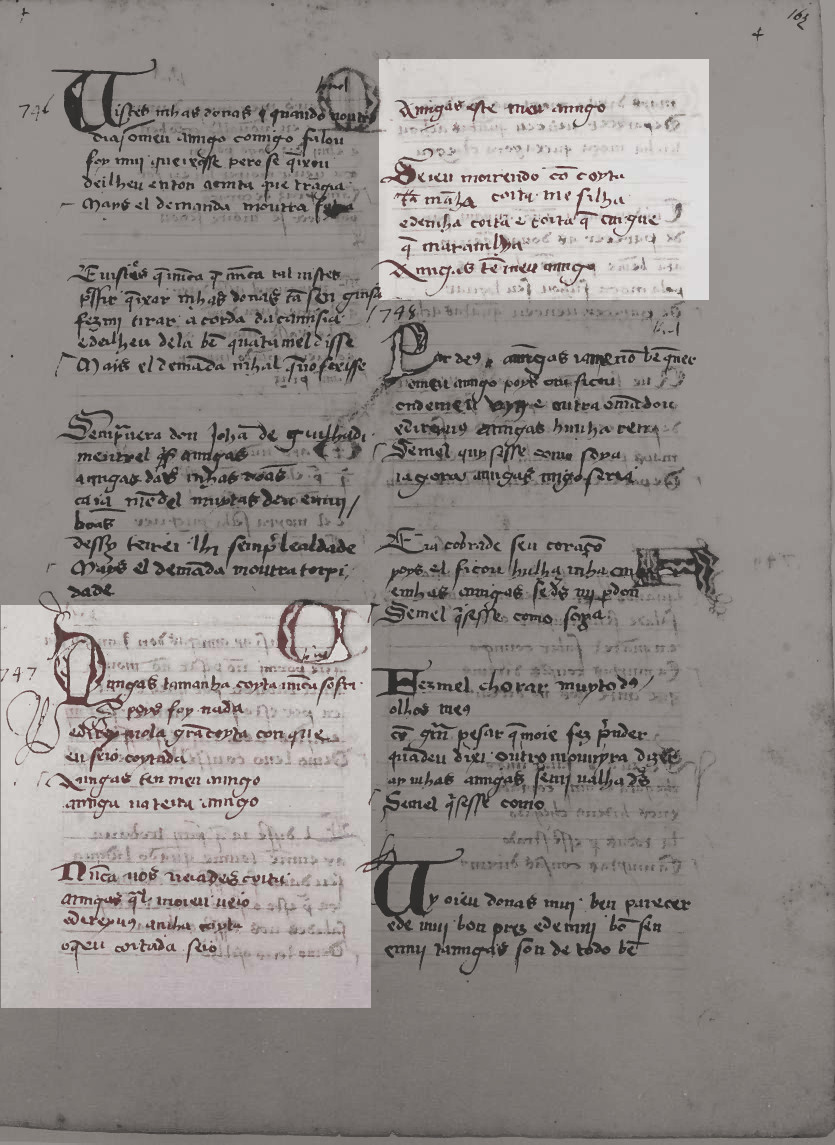 162
746
Uistes mhas donas q̄ quando noutro
dia o meu amigo comigo falou
foy muj queixosse pero se q̄ixou
deilheu enton acinta que tragia
Mays el demanda moutra
E uistes q̄ nūca q̄ nūca tal uistes
q̄ixar mhas donas tā sen guisa
fezmi tirar a corda da camisia
edeilheu dela bē quāta mel disse
Mais el demāda mhal
Semp̄uera don Johā de guilhadi
amigas
amigas dās mhas dōas
ca ia mēdel muytas deu e mui
boas
desy terrei lhi semp̄ lealdade
Mays el demāda moutra torpi
dade
747
Amigas tamanha coyta nūca sofri
poys foy nada
e direyuola grā coyta con que
eu seio coytada
Amigas ten meu amigo
amiga na terra amigo
Nūca uos ueiades coyta
amigas q̄l moieu ueio
e direyuus a mha coyta
o q̄eu coitada seio
Amigas este meu amigo
Seieu morrendo cō coyta
tā māha coita me filha
e de mha coita e coita q̄ migue
q̄ marauilha
Amigas tē meu amigo
748
Par deꝯ amigas ia me nō bē quer
o meu amigo poys ficou
onde meu e outra o mādou
e direyuꝯ amigas hunha ren
Se mel quisesse como soya
ia gora amigas migo seria
E ia cobrade seu coraçō
poys el ficou hu lha mha
e mhas amigas se dꝯ mi pdon
Se mel q̄sesse como soya
Fezmel chorar muyto dꝯ
olhos meꝯ
cō grā pesar q̄ moie fez p̄nder
quādeu dixi outro mouuyra dizer
ay mhas amigas se mi ualha dꝯ
Se mel q̄sesse como
Uy oieu donas mui ben parecer
e de mui bon prez e de mui bō sen
e mui tamigas son de todo bē